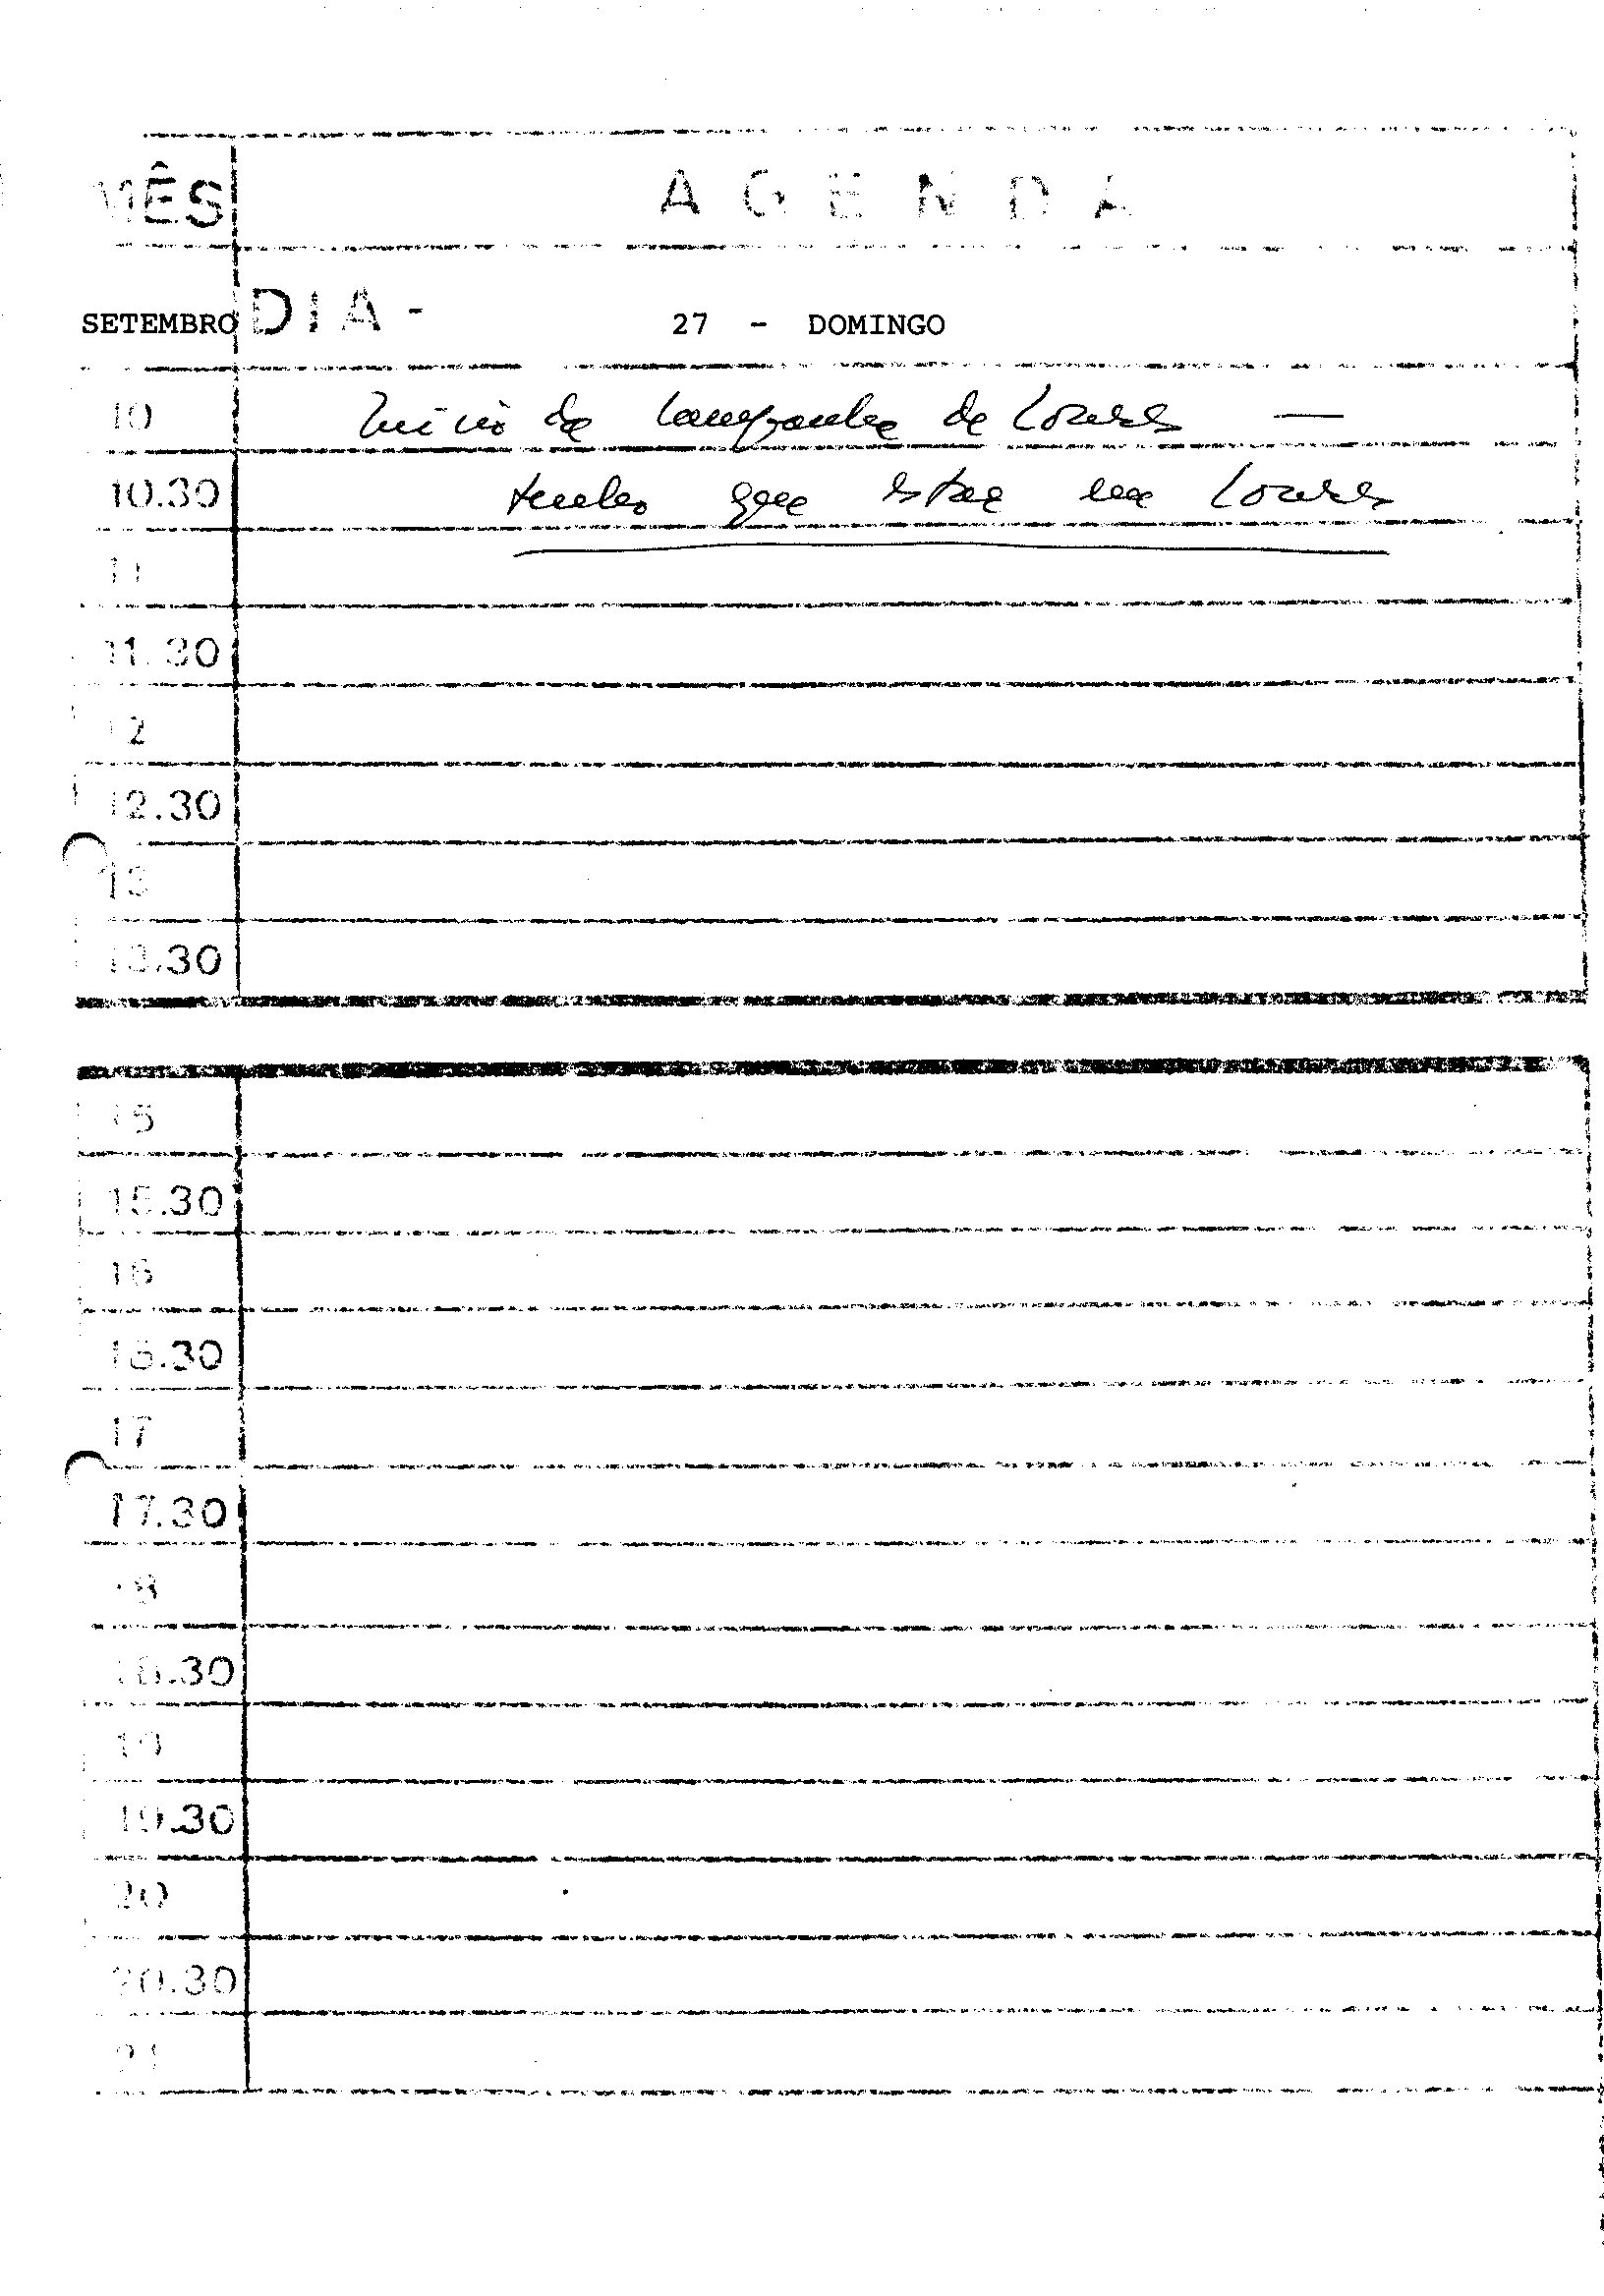 MÊS
A G E N D A
SETEMBRO DIA - 27 - DOMINGO
10 Início da Campanha de Loures —
10.30 tenho que estar em Loures
11
11.30
12
12.30
13
13.30
15
15.30
16
16.30
17
17.30
18
18.30
19
19.30
20
20.30
21